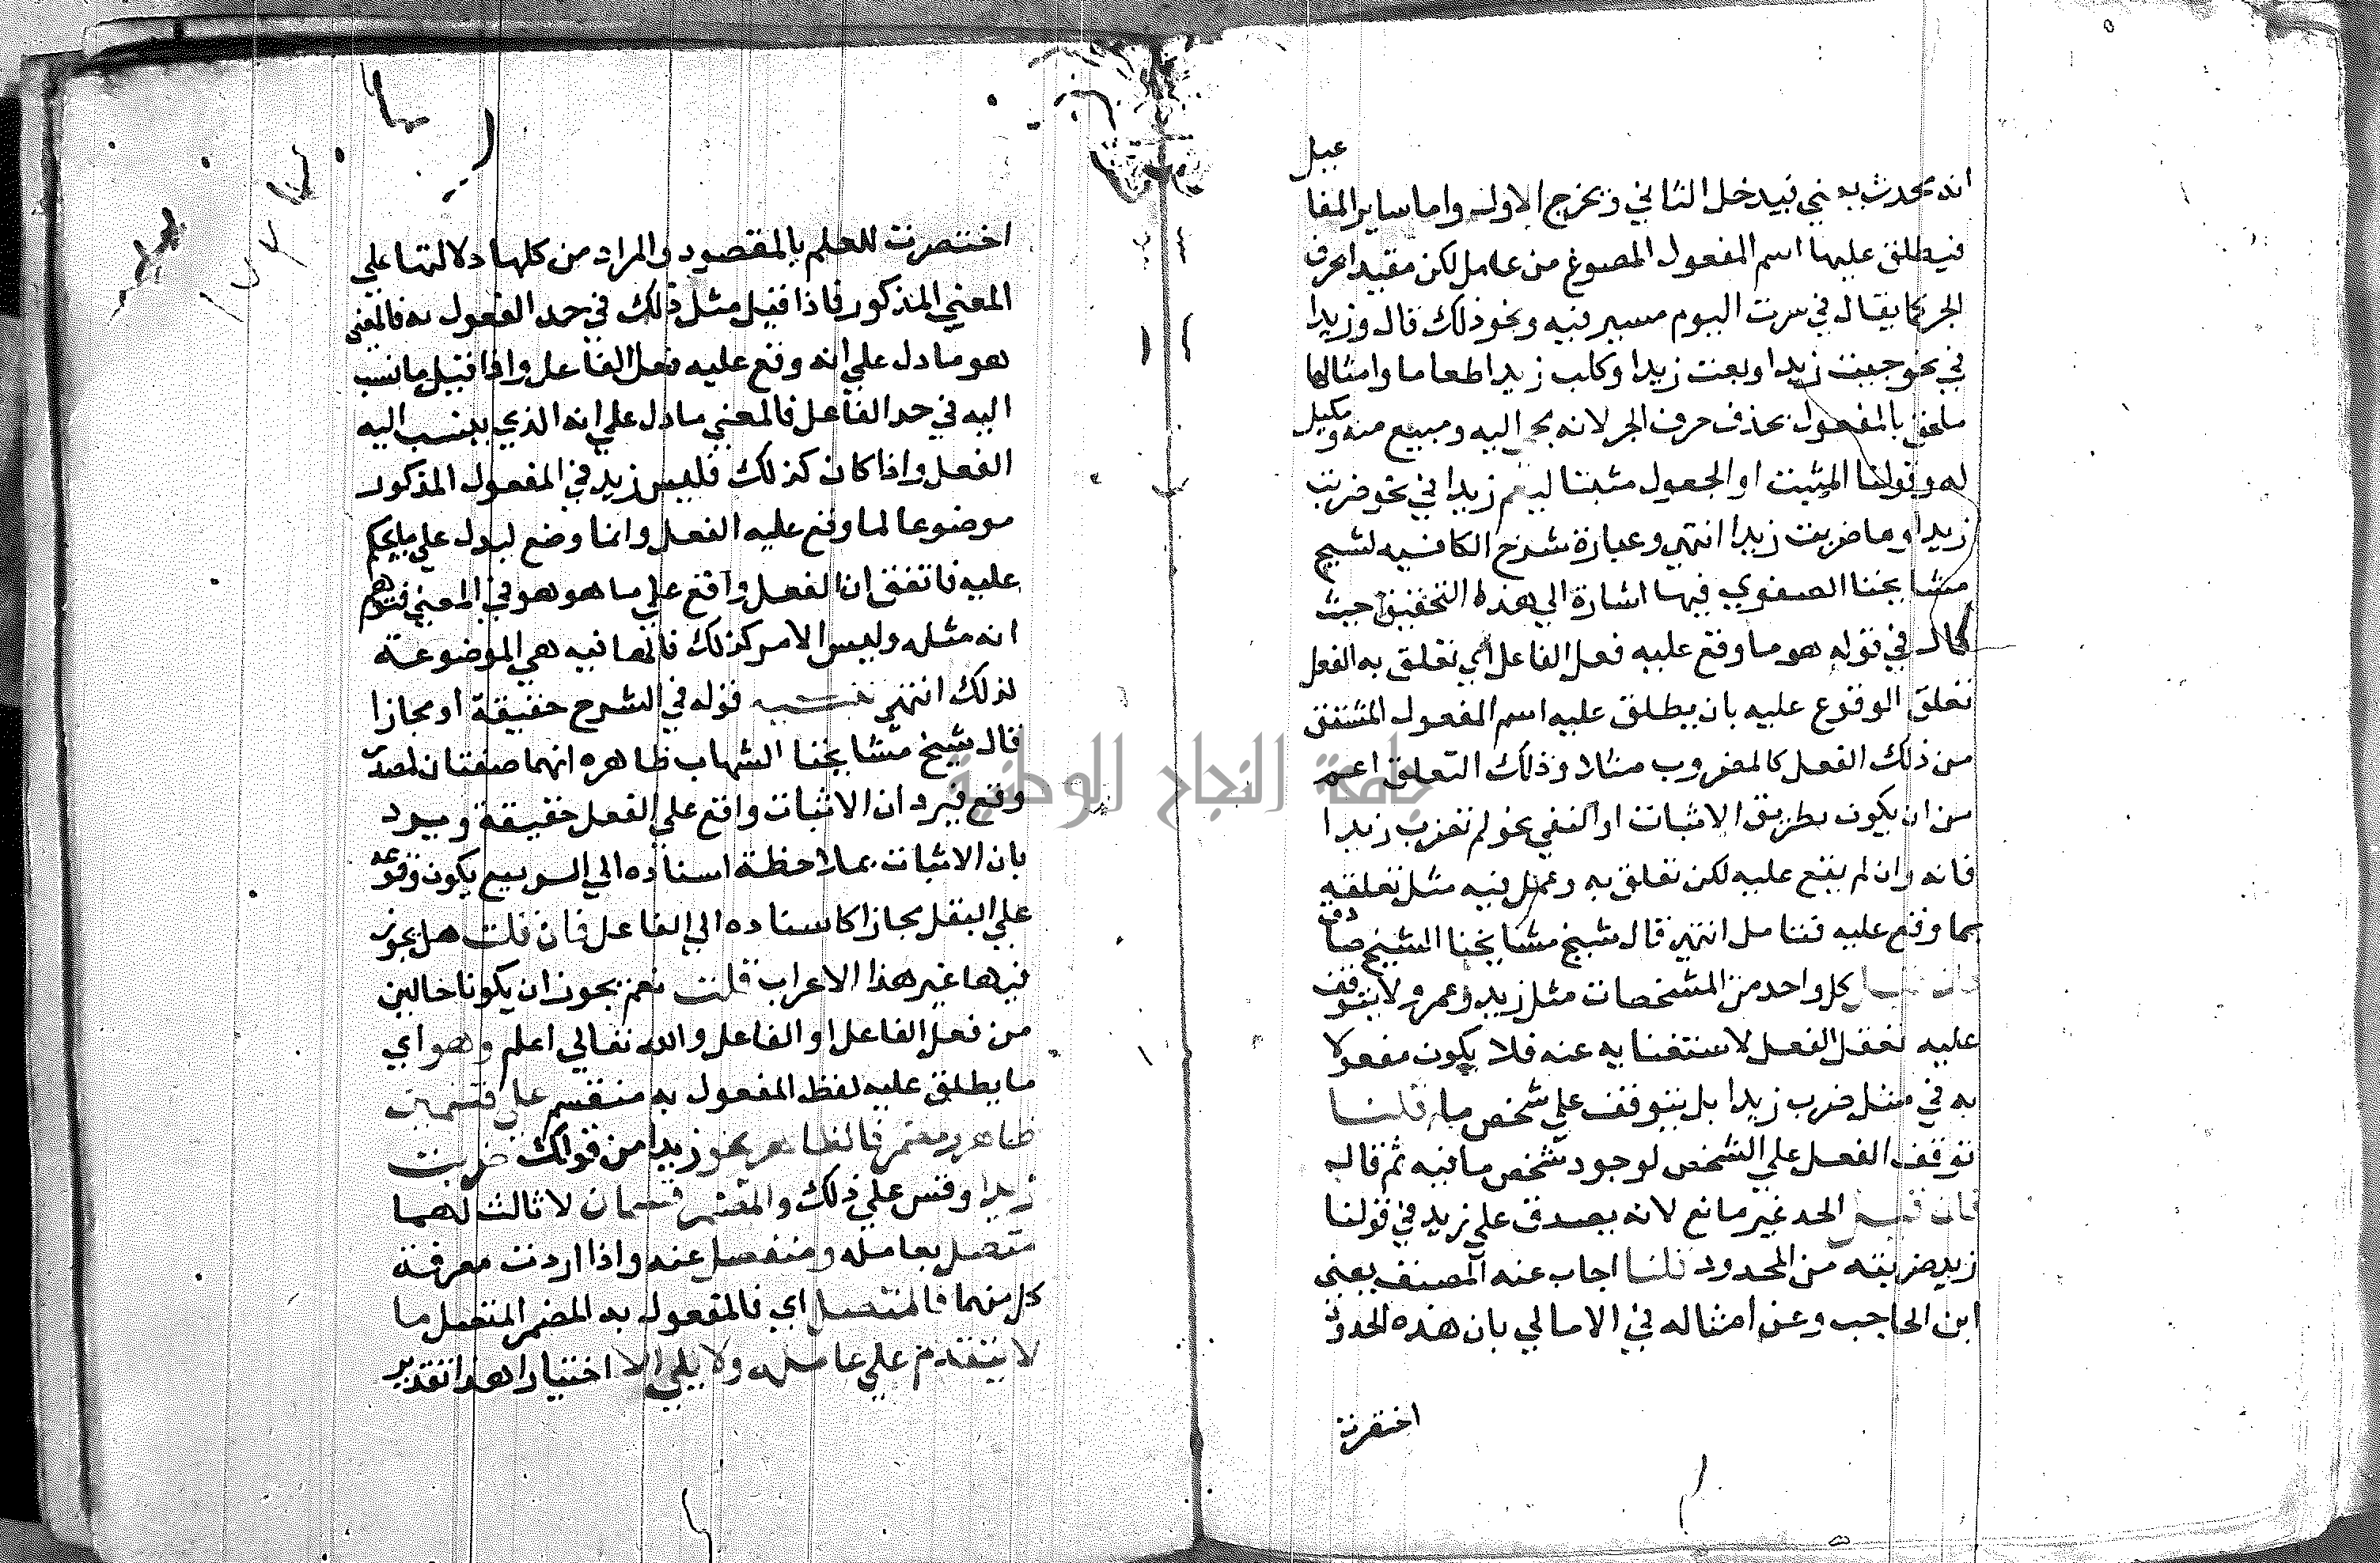 انه يحدث به ني فيدخل الثاني ويخرج الاول واما ساير المفاعيل
فيطلق عليها اسم المفعول المصوغ من عامل لكن مقيد ابحرف
الجر كما يقال في سرت اليوم مسير فيه ونحو ذلك قال وزيدا
في نحو جيت زيدا وبعت زيدا وكلت زيدا طعاما وامثالها
ملحق بالمفعول بحذف حرف الجر لانه مجي اليه ومبيع منه ومكيل
له وقولنا المثبت او المجعول مثبتا ليعم زيدا في نحو ضربت
زيدا وما ضربت زيدا انتهى وعبارة شرح الكافيه لشيخ
مشايخنا الصفوي فيها اشارة الي هذا التحقيق حيث
قال في قوله هو ما وقع عليه فعل الفاعل اي تعلق به الفعل
تعلق الوقوع عليه بان يطلق عليه اسم المفعول المشتق
من ذلك الفعل كالمضروب مثلا وذلك التعلق اعم
من ان يكون بطريق الاثبات او النفي نحو لم تضرب زيدا
فانه وان لم يقع عليه لكن تعلق به وعمل فيه مثل تعلقه
بما وقع عليه فتامل انتهى قال شيخ مشايخنا الشيخ
فان كل واحد من المشخصات مثل زيد وعمرو لا يتوقف
عليه تعقل الفعل لاستغنايه عنه فلا يكون مفعولا
به في مثل ضرب زيدا بل يتوقف علي شخص ما قلنا
توقف الفعل علي الشخص لوجود شخص ما فيه ثم قال
فان قيل الحد غير مانع لانه يصدق علي زيد في قولنا
زيد ضربته من المحدود قلنا اجاب عنه المصنف يعني
ابن الحاجب وعن امثاله في الامالي بان هذه الحدود
اختصرت
اختصرت للعلم بالمقصود والمراد من كلها دلالتها علي
المعني المذكور فاذا قيل مثل ذلك في حد المفعول به فالمعني
هو ما دل علي انه وقع عليه فعل الفاعل واذا قيل ما نسب
اليه في حد الفاعل فالمعني ما دل علي انه الذي ينسب اليه
الفعل واذا كان كذلك فليس زيد في المفعول المذكور
موضوعا لما وقع عليه الفعل وانما وضع ليدل علي ما يحكم
عليه فاتفق ان الفعل واقع علي ما هو هو في المعني فتوهم
انه مثله وليس الامر كذلك فالها فيه هي الموضوعة
لذلك انتهى تنبيه قوله في الشرح حقيقة او مجازا
قال شيخ مشايخنا الشهاب ظاهره انهما صفتان لمصدر
وقع فيرد ان الاثبات واقع علي الفعل حقيقة ويرد
بان الاثبات بملاحظة اسناده الي الربيع يكون وقوعه
علي البقل مجازا كاسناده الي الفاعل فان قلت هل يجوز
فيهما غير هذا الاعراب قلت نعم يجوز ان يكونا حالين
من فعل الفاعل او الفاعل والله تعالي اعلم وهو اي
ما يطلق عليه لفظ المفعول به منقسم علي قسمين
ظاهر ومضمر فالظاهر نحو زيدا من قولك ضربت
زيدا وقس علي ذلك والمضمر قسمان لا ثالث لهما
متصل بعامله ومنفصل عنه واذا اردت معرفة
كل منهما فالمتصل اي فالمفعول به المضمر المتصل ما
لا يتقدم علي عامله ولا يلي الا اختيارا هذا تقدير
جامعة النجاح الوطنية